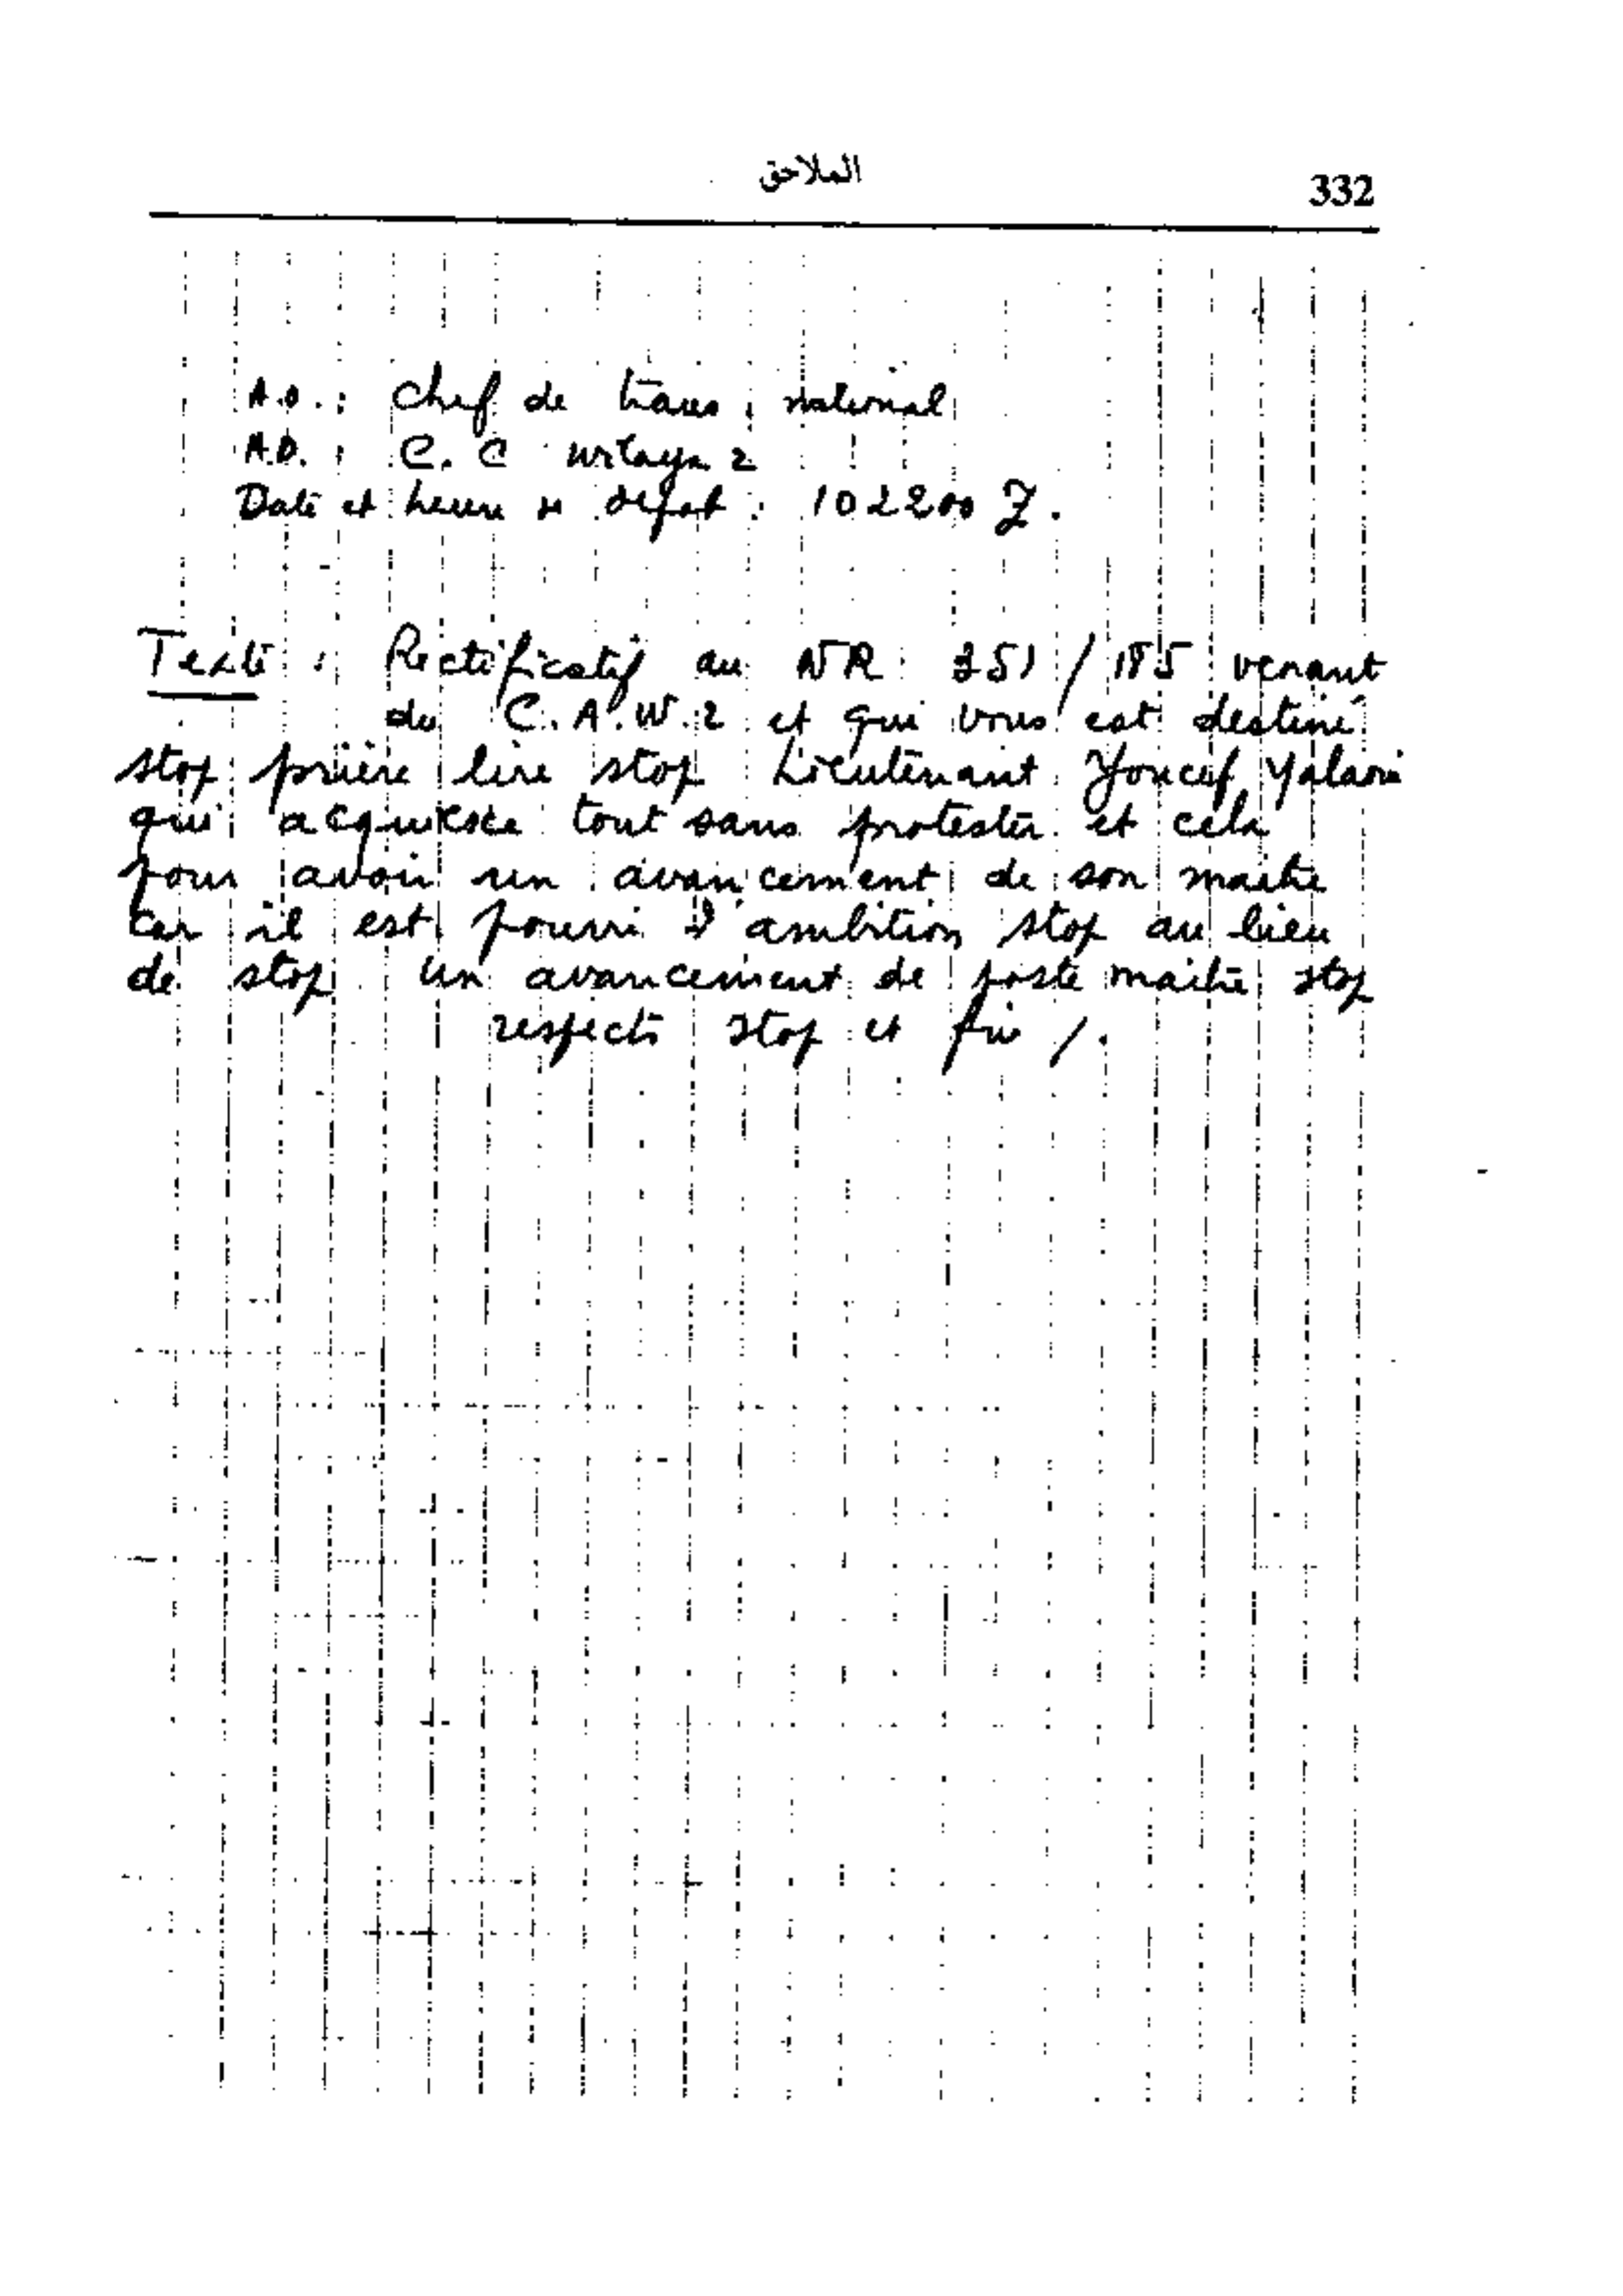 الملاحق
332
A.O. : Chef de trans national
A.D. : C. C wilaya 2
Date et heure de dépot : 102200 Z.
Texte : Rectificatif au NR 351 / 185 venant
du C.A.W.2 et qui vous est destiné
stop prière lire stop Lieutenant Youcef Yalaoui
qui acquiesce tout sans protester et cela
pour avoir un avancement de son maitre
car il est pourri d'ambition stop au lieu
de stop un avancement de poste maitre stop
respects stop et fin /.